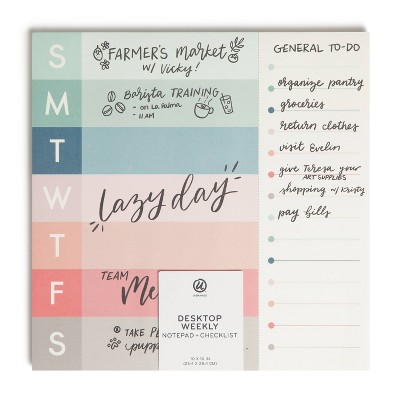 S
FARMER'S MARKET
W/ Vicky!
M
Barista TRAINING
- on La Palma
- 11 AM
T
W
lazy day
T
F
TEAM
Me
S
TAKE PE
pupp
GENERAL TO-DO
organize pantry
groceries
return clothes
visit Evelin
give Teresa your
ART SUPPLIES
shopping w/ Kristy
pay bills
u
DESKTOP
WEEKLY
NOTEPAD + CHECKLIST